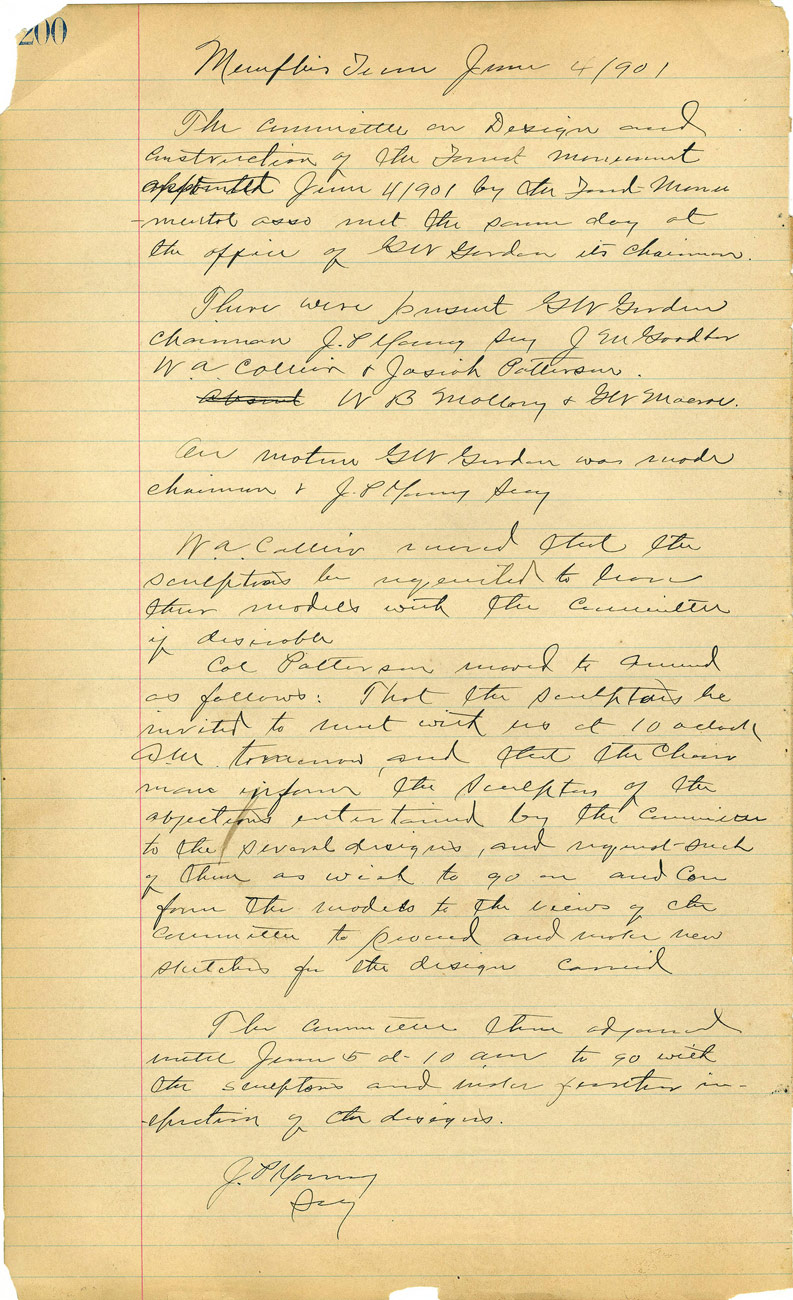 200
Memphis Tenn June 4/901
The Committee on Design and
Construction of the Forrest Monument
appointed June 4/901 by the Forrest Monu
-mental asso met the same day at
the office of GW Gordon its chairman.
There were present GW Gordon
chairman J.P Young Secy J M Goodbar
W.A. Collier & Josiah Patterson.
Absent W B Mallory & GW Macrae.
On motion GW Gordon was made
chairman & J.P Young Secy
W.A. Collier moved that the
sculptors be requested to leave
their models with the Committee
if desirable
Col Patterson moved to amend
as follows: That the sculptors be
invited to meet with us at 10 oclock
A.M. tomorrow, and that the Chair
man inform the sculptors of the
objections entertained by the Committee
to the several designs, and request such
of them as wish to go on and Con
form the models to the views of the
Committee to proceed and make new
sketches for the design Carried
The Committee then adjourned
until June 5 at 10 am to go with
the sculptors and make further in-
-spection of the designs.
J.P Young
Secy